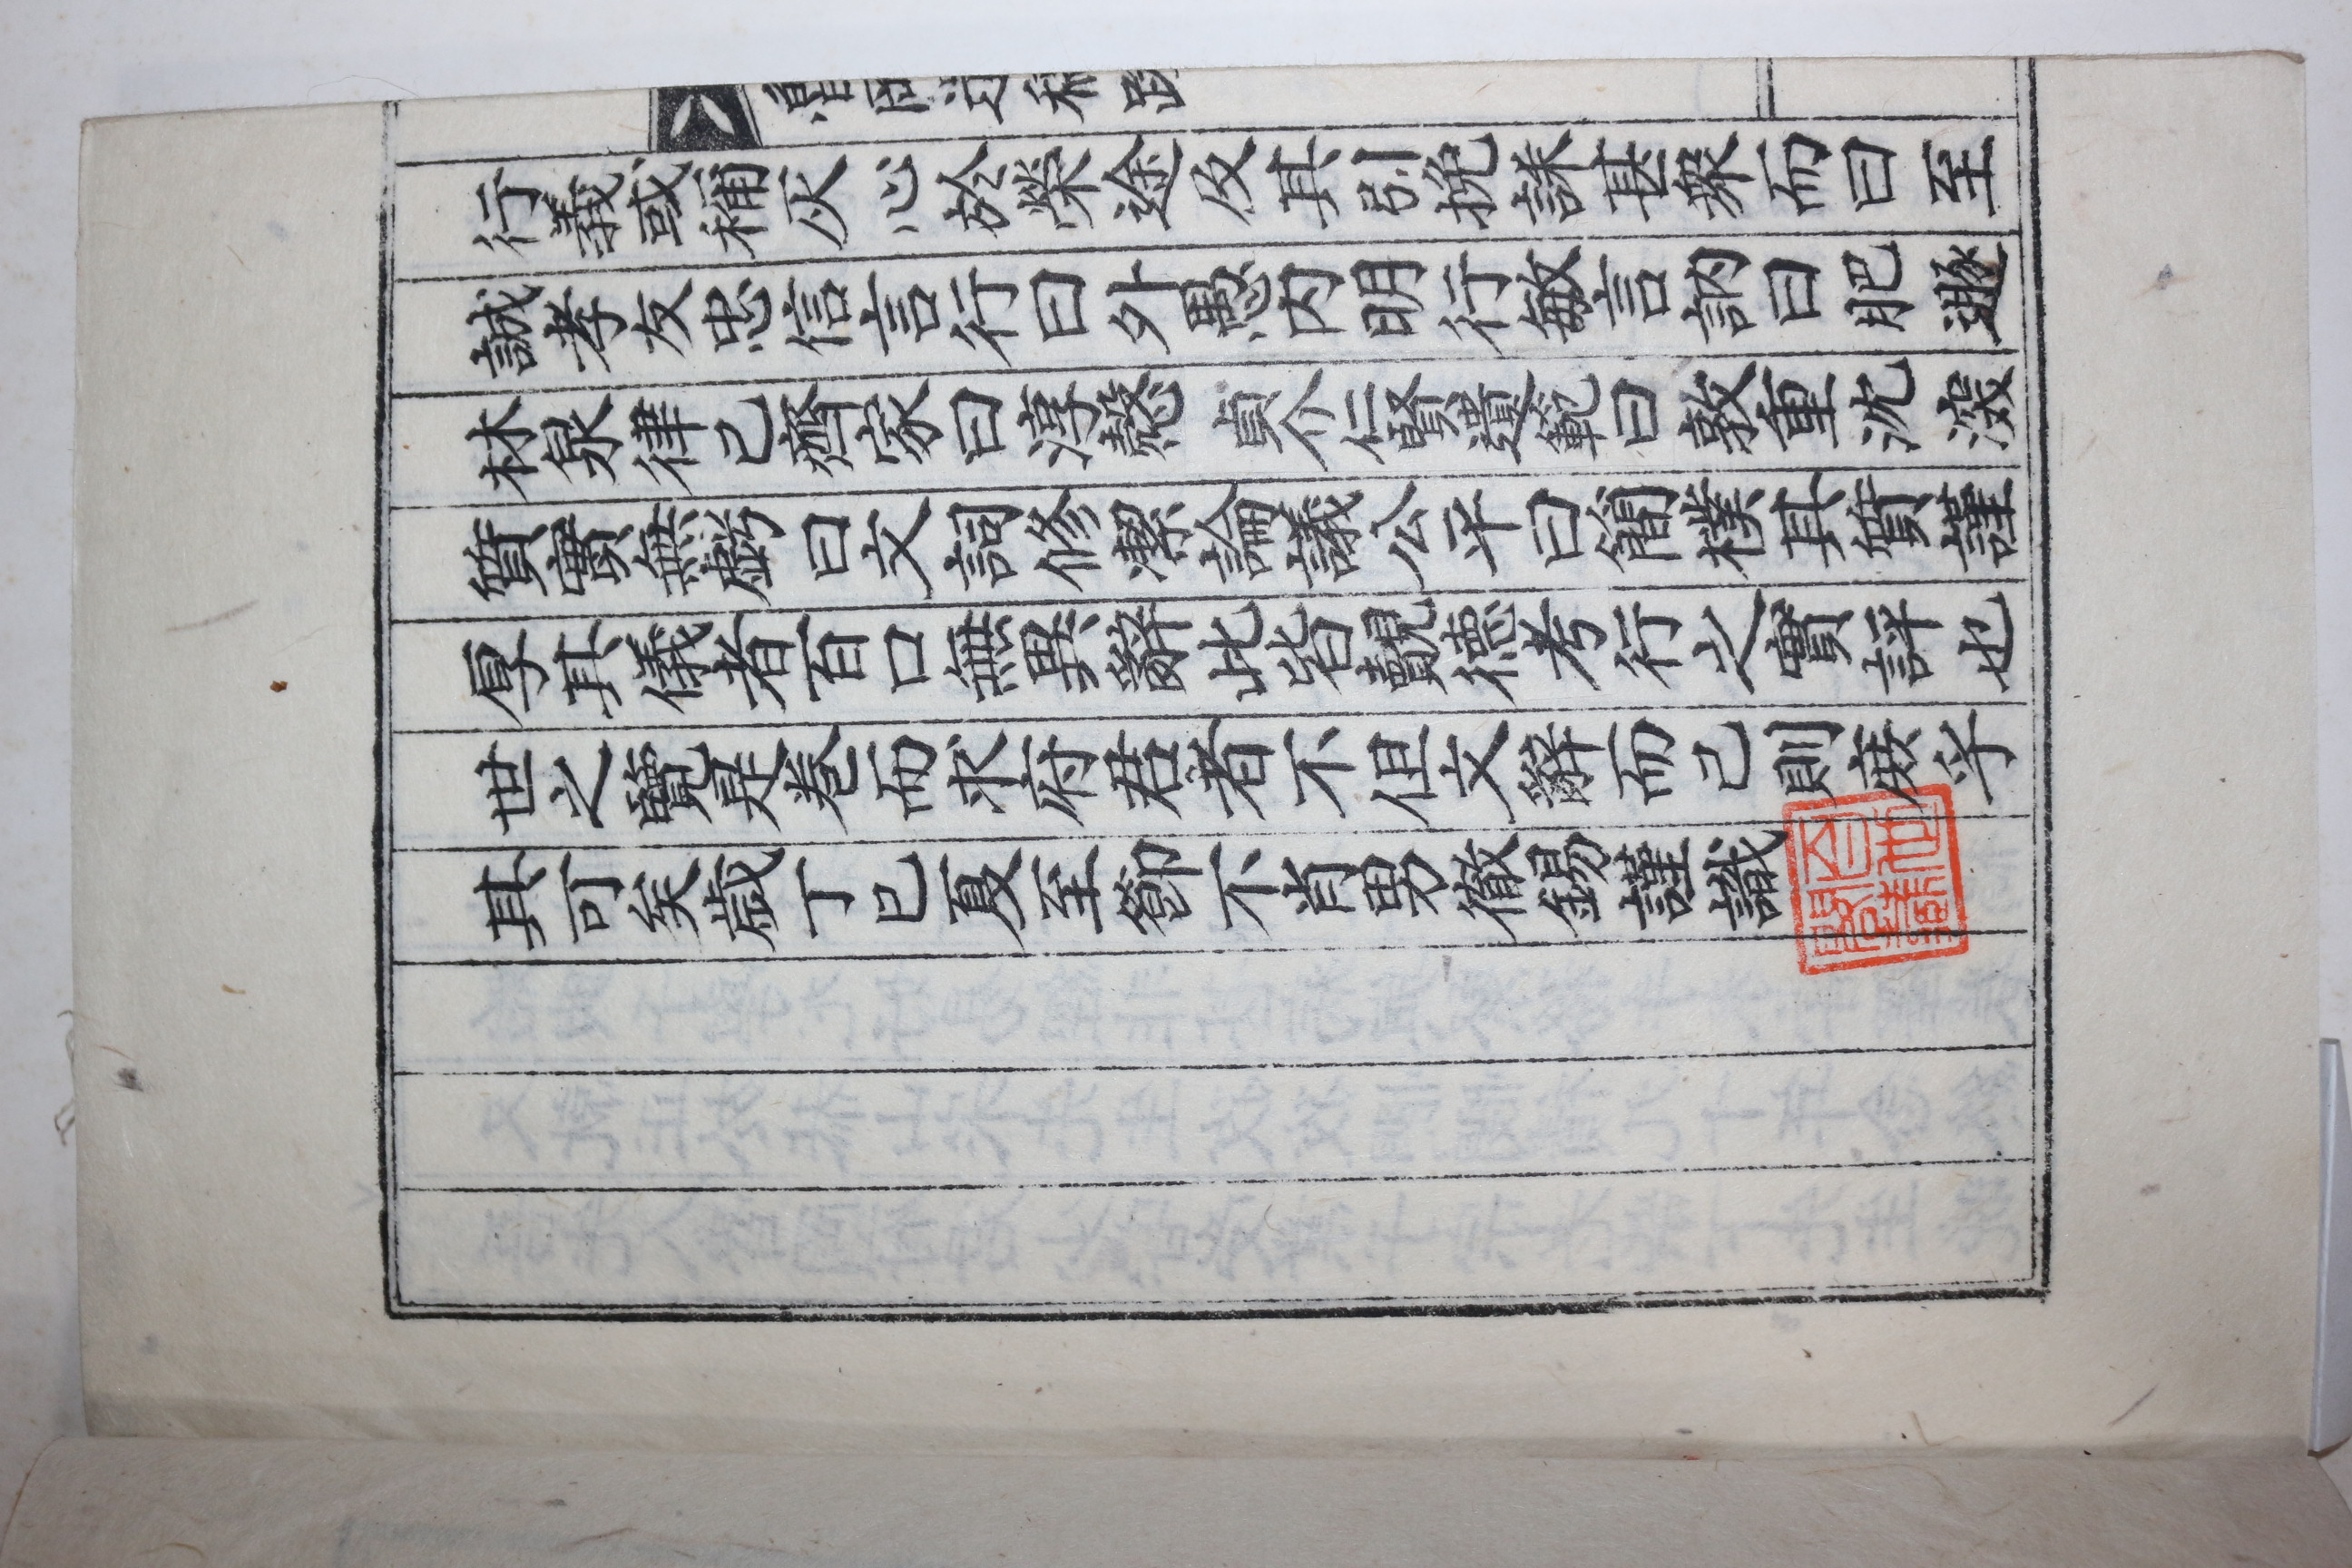 行義或稱灰心於榮途及其引挽誄甚衆而曰至
誠孝友忠信言行曰外愚内明行敏言訥曰肥遯
林泉律己齊家曰淳慤貞介仁賢遺範曰敦重沈深
質實無虧曰文詞修潔論議公平曰簡樸其質謹
厚其儀者百口無異辭此皆覿德考行之實評也
世之覽是卷而求府君者不但文辭而己則庻乎
其可矣歲丁巳夏至節不肖男徹錫謹識